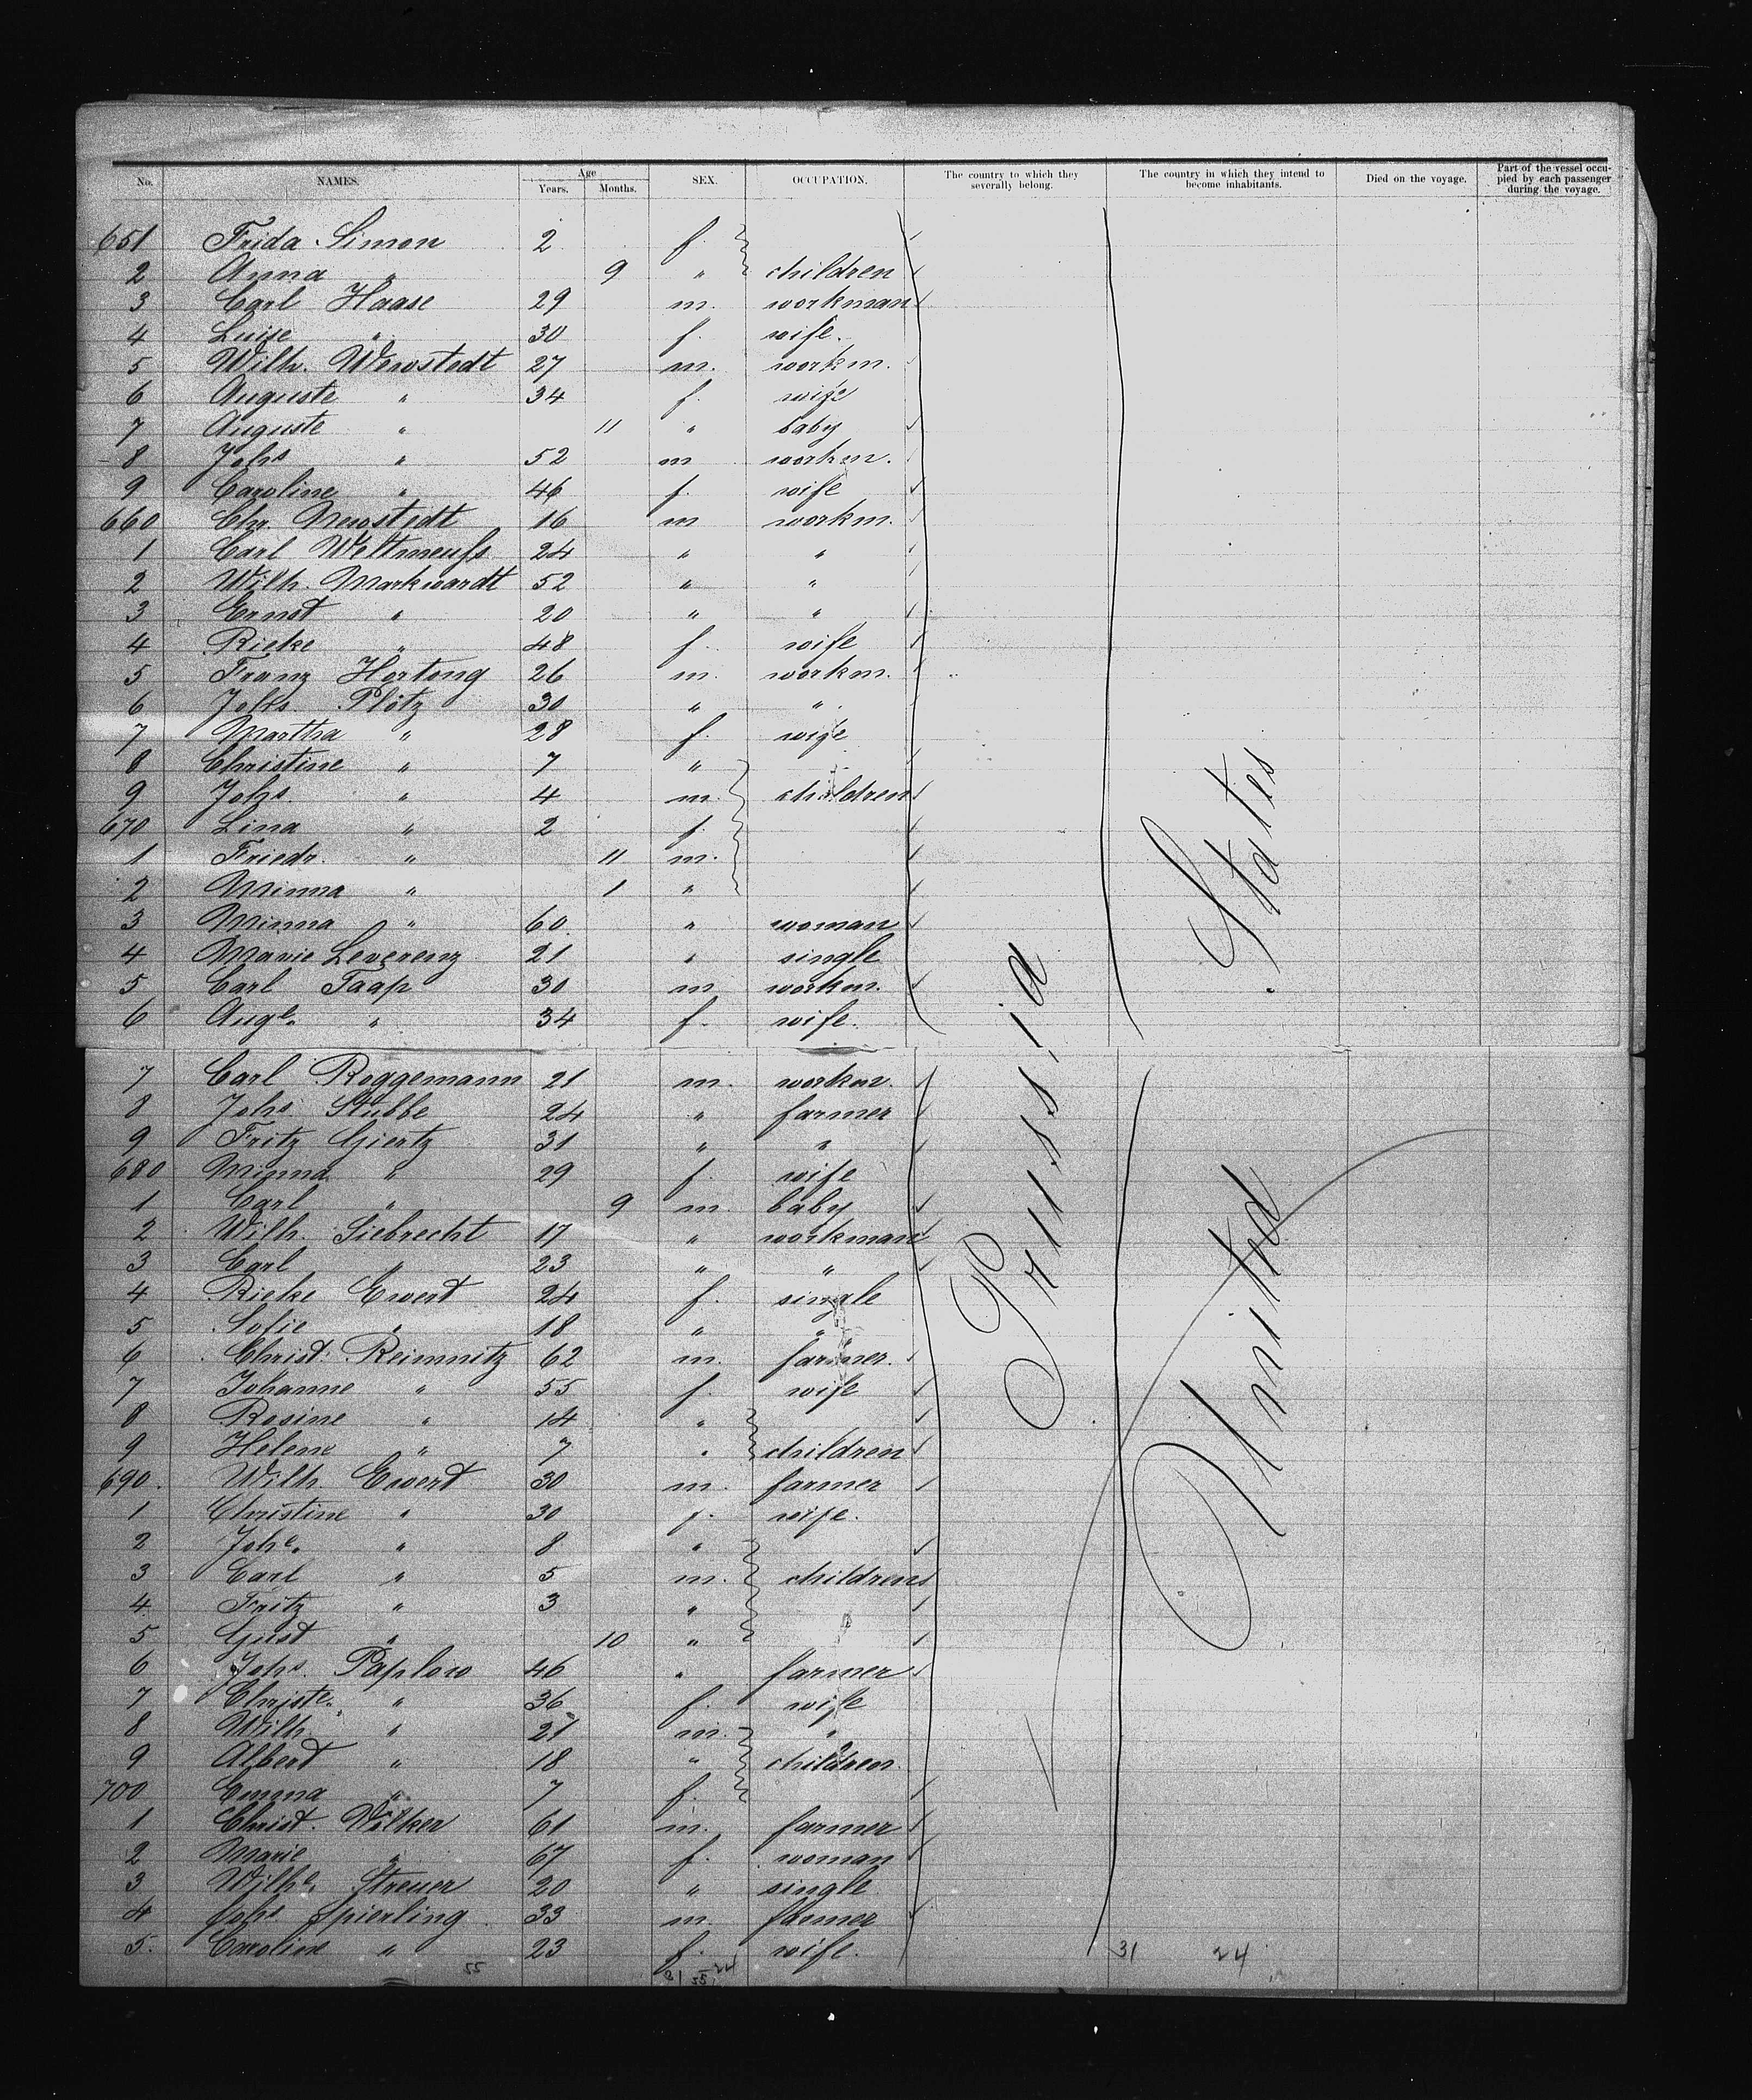 No. NAMES. Age Years. Months. SEX. OCCUPATION. The country to which they severally belong. The country in which they intend to become inhabitants. Died on the voyage. Part of the vessel occupied by each passenger during the voyage.
651 Frida Simon 2 f.
2 Anna " 9 " children
3 Carl Haase 29 m. workman
4 Luise " 30 f. wife.
5 Wilh. Wewstedt 27 m. workm.
6 Auguste " 34 f. wife
7 Auguste " 11 " baby
8 Johs " 52 m workm.
9 Caroline " 46 f. wife
660 Chr. Newstedt 16 m workm.
1 Carl Weltmeufs 24 " "
2 Wilh. Markwardt 52 " "
3 Ernst " 20 " "
4 Rieke " 48 f. wife
5 Franz Hartong 26 m. workm.
6 Johs. Plötz 30 " "
7 Martha " 28 f. wife
8 Christine " 7 "
9 Johs. " 4 m. children
670 Lina " 2 f.
1 Friedr. " 11 m.
2 Minna " 1 "
3 Minna " 60 " woman
4 Marie Leverenz 21 " single
5 Carl Taap 30 m workm.
6 Auge. " 34 f. wife.
7 Carl Roggemann 21 m. workm.
8 Johs Stubbe 24 " farmer
9 Fritz Giertz 31 " "
680 Minna " 29 f. wife
1 Carl " 9 m. baby
2 Wilh. Siebrecht 17 " workman
3 Carl " 23 " "
4 Rieke Ewert 24 f. single
5 Sofie " 18 " "
6 Christ. Reimnitz 62 m. farmer.
7 Johanne " 55 f. wife
8 Rosine " 14 "
9 Helene " 7 " children
690. Wilh. Ewert 30 m. farmer
1 Christine " 30 f. wife.
2 Johe. " 8 "
3 Carl " 5 m. children
4 Fritz " 3 "
5 Gust " 10 "
6 Johs. Paplow 46 " farmer
7 Christe. " 36 f. wife
8 Wilh. " 21 m. "
9 Albert " 18 " children.
700 Emma " 7 f.
1 Christ. Wölker 61 m. farmer
2 Marie " 67 f. woman
3 Wilhe. Streuer 20 " single
4 Johs Spierling 33 m. farmer
5. Caroline " 23 f. wife.
Prussia
United States
55 31 55 24 31 24